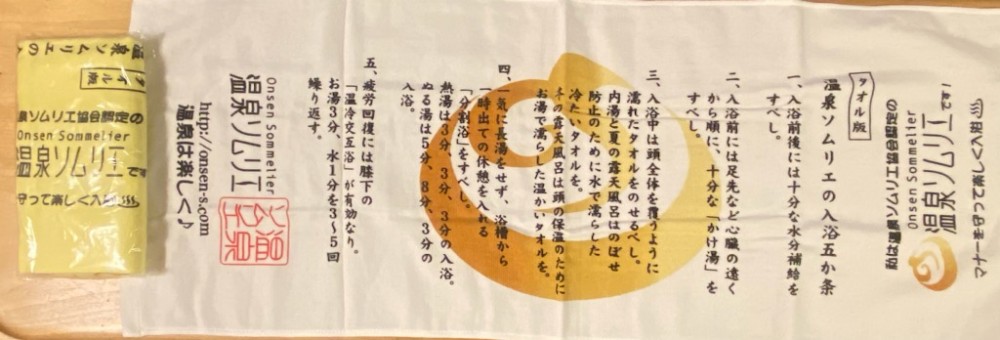 マナーを守って楽しく入浴
温泉ソムリエです!
Onsen Sommelier
私は温泉ソムリエ協会認定の
タオル版
温泉ソムリエの入浴五か条
一、入浴前後には十分な水分補給を
すべし。
二、入浴前には足先など心臓の遠く
から順に、十分な「かけ湯」を
すべし。
三、入浴中は頭全体を覆うように
濡れたタオルをのせるべし。
内湯と夏の露天風呂はのぼせ
防止のために水で濡らした
冷たいタオルを。
冬の露天風呂は頭の保温のために
お湯で濡らした温かいタオルを。
四、一気に長湯をせず、浴槽から
一時出ての休憩を入れる
「分割浴」をすべし。
熱湯は3分、3分、3分の入浴。
ぬる湯は5分、8分、3分の
入浴。
五、疲労回復には膝下の
「温冷交互浴」が有効なり。
お湯3分、水1分を3〜5回
繰り返す。
Onsen Sommelier
温泉ソムリエ
温泉
ソムリエ
http://onsen-s.com
温泉は楽しく♪
温泉ソムリエの
タオル版
泉ソムリエ協会認定の
Onsen Sommelier
温泉ソムリエ
守って楽しく入浴